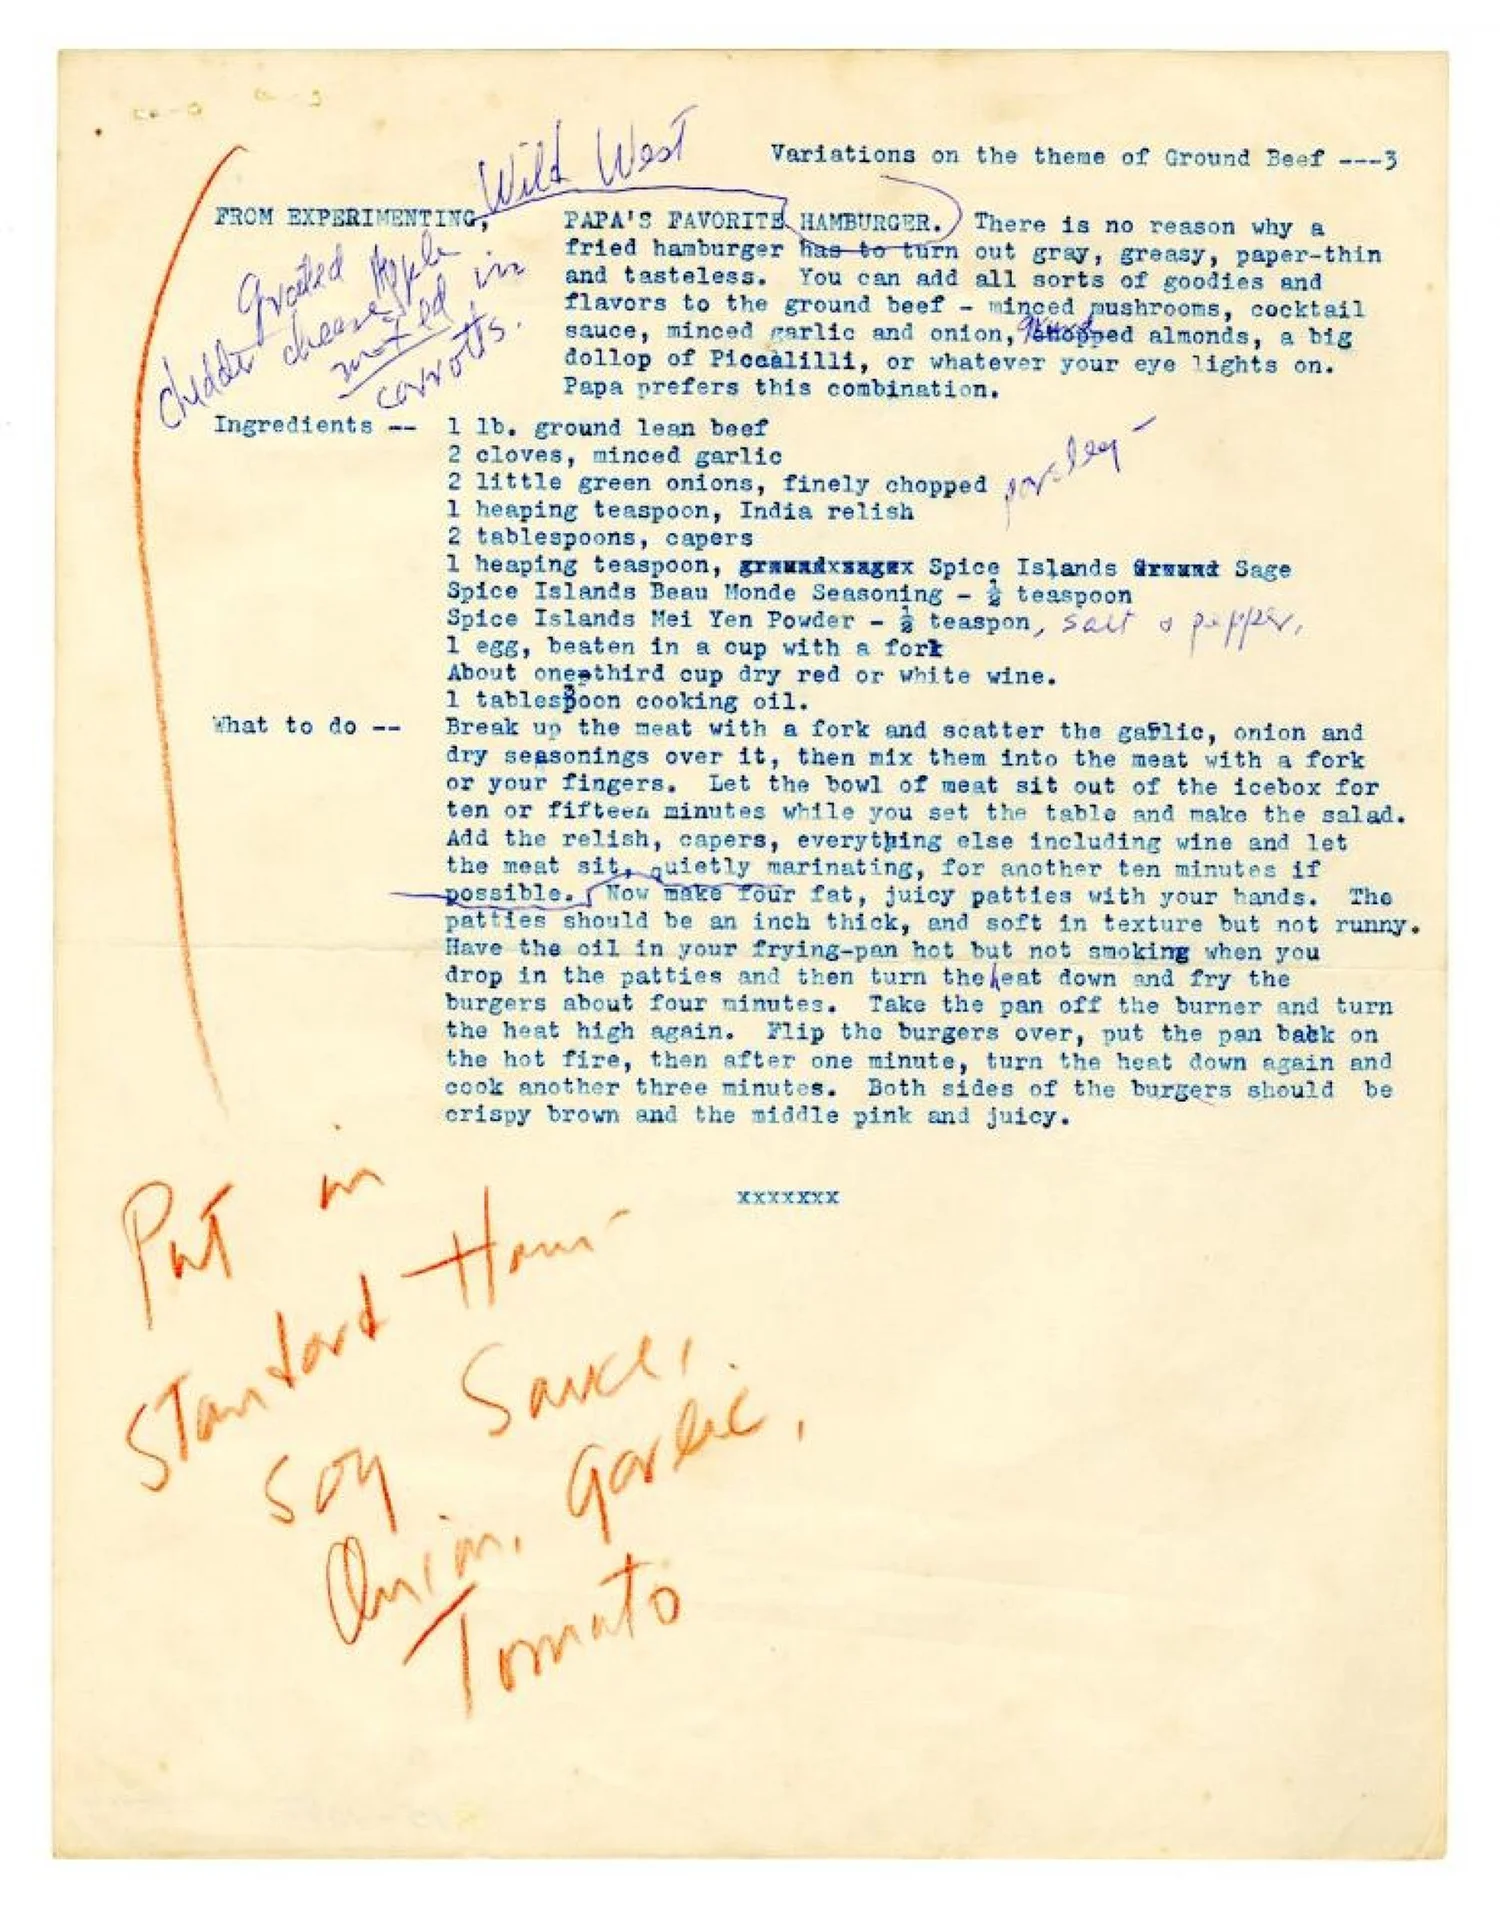 Wild West
Variations on the theme of Ground Beef ---3
FROM EXPERIMENTING,
PAPA'S FAVORITE HAMBURGER. There is no reason why a
fried hamburger has to turn out gray, greasy, paper-thin
and tasteless. You can add all sorts of goodies and
flavors to the ground beef - minced mushrooms, cocktail
sauce, minced garlic and onion, chopped almonds, a big
dollop of Piccalilli, or whatever your eye lights on.
Papa prefers this combination.
Grated Apple
chedder cheese
mixed in
carrots.
Ingredients --
1 lb. ground lean beef
2 cloves, minced garlic
2 little green onions, finely chopped
parsley
1 heaping teaspoon, India relish
2 tablespoons, capers
1 heaping teaspoon, Spice Islands Sage
Spice Islands Beau Monde Seasoning - ½ teaspoon
Spice Islands Mei Yen Powder - ½ teaspon, salt & pepper,
1 egg, beaten in a cup with a fork
About one-third cup dry red or white wine.
1 tablespoon cooking oil.
What to do --
Break up the meat with a fork and scatter the garlic, onion and
dry seasonings over it, then mix them into the meat with a fork
or your fingers. Let the bowl of meat sit out of the icebox for
ten or fifteen minutes while you set the table and make the salad.
Add the relish, capers, everything else including wine and let
the meat sit, quietly marinating, for another ten minutes if
possible. Now make four fat, juicy patties with your hands. The
patties should be an inch thick, and soft in texture but not runny.
Have the oil in your frying-pan hot but not smoking when you
drop in the patties and then turn the heat down and fry the
burgers about four minutes. Take the pan off the burner and turn
the heat high again. Flip the burgers over, put the pan back on
the hot fire, then after one minute, turn the heat down again and
cook another three minutes. Both sides of the burgers should be
crispy brown and the middle pink and juicy.
xxxxxxx
Put in
Standard Ham-
Soy Sauce,
Onion, Garlic,
Tomato